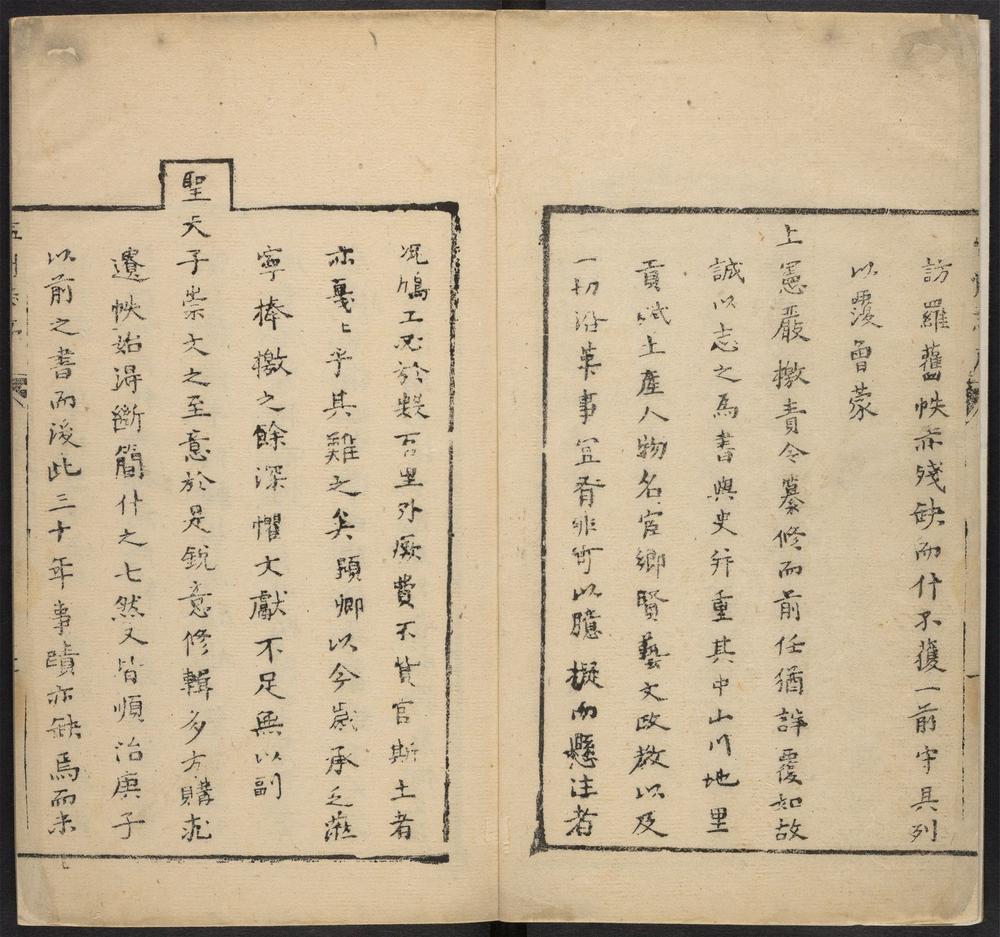 訪羅舊帙亦殘缺而什不獲一前守具列
以覆會蒙
上憲嚴檄責令纂修而前任猶詳覆如故
誠以志之為書與史并重其中山川地里
貢賦土產人物名宦鄉賢藝文政教以及
一切沿革事宜胥非可以臆擬而懸注者
況鳩工又於數百里外厥費不貲官斯土者
亦戛〻乎其難之矣顯卿以今歲承乏蒞
寧捧檄之餘深懼文獻不足無以副
聖天子崇文之至意於是銳意修輯多方購求
遺帙始得斷簡什之七然又皆順治庚子
以前之書而後此三十年事蹟亦缺焉而未